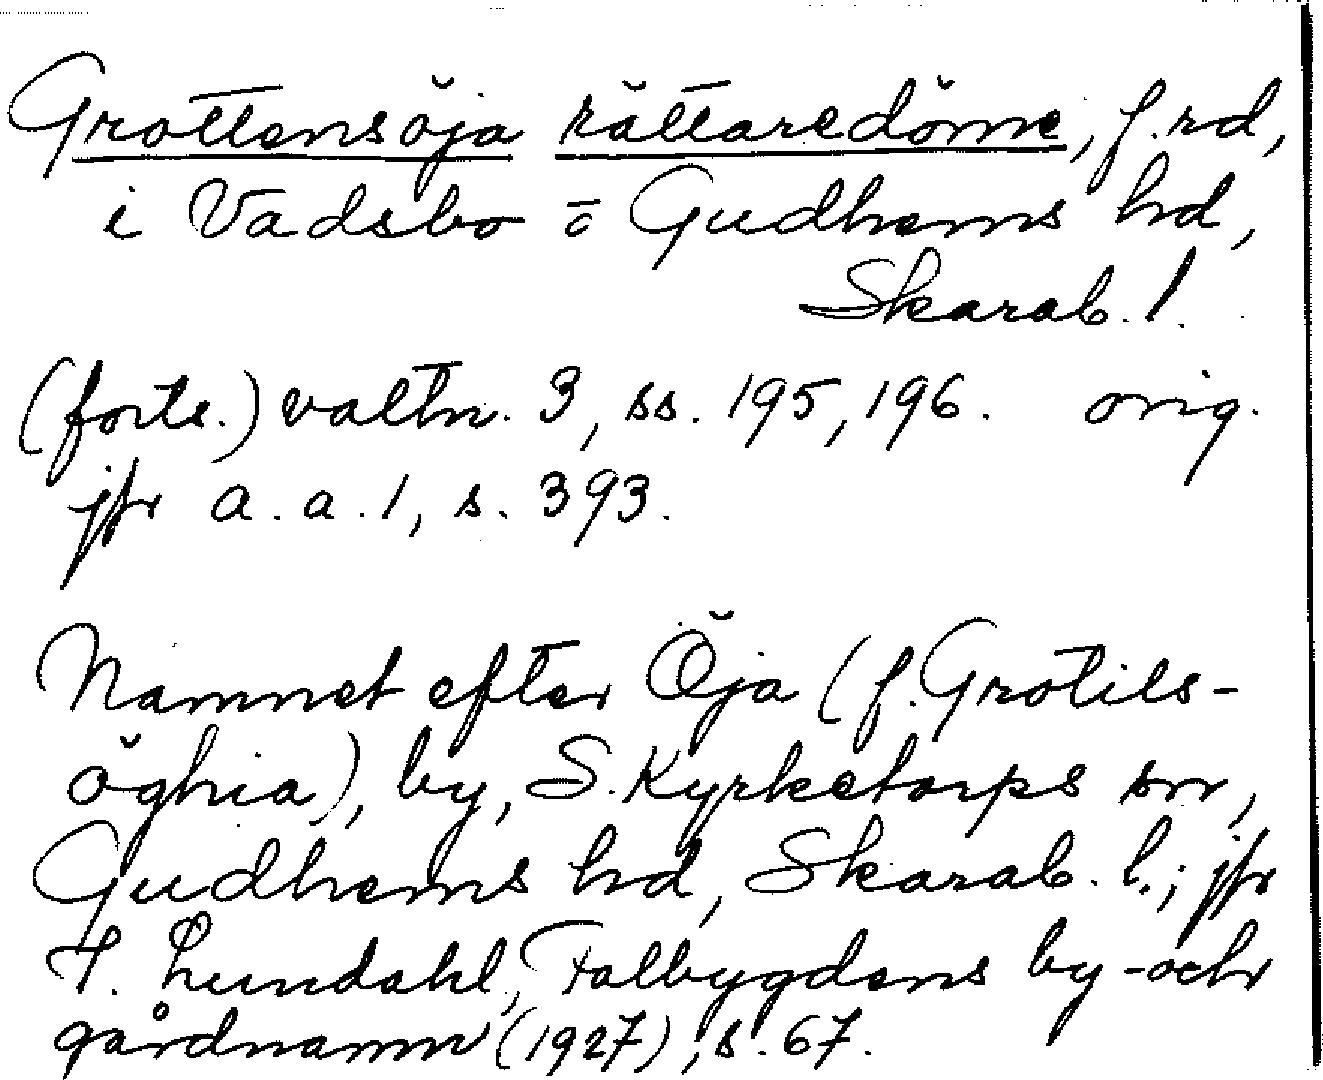 Grottensöja rättaredöme, f.rd,
i Vadsbo o Gudhems hd,
Skarab. l.
(forts.) valtn. 3, ss. 195, 196. orig.
jfr a.a. 1, s. 393.
Namnet efter Öja (f. Grotils-
öghia), by, S. Kyrketorps sn,
Gudhems hd, Skarab. l.; jfr
I. Lundahl, Falbygdens by- och
gårdnamn (1927), s. 67.